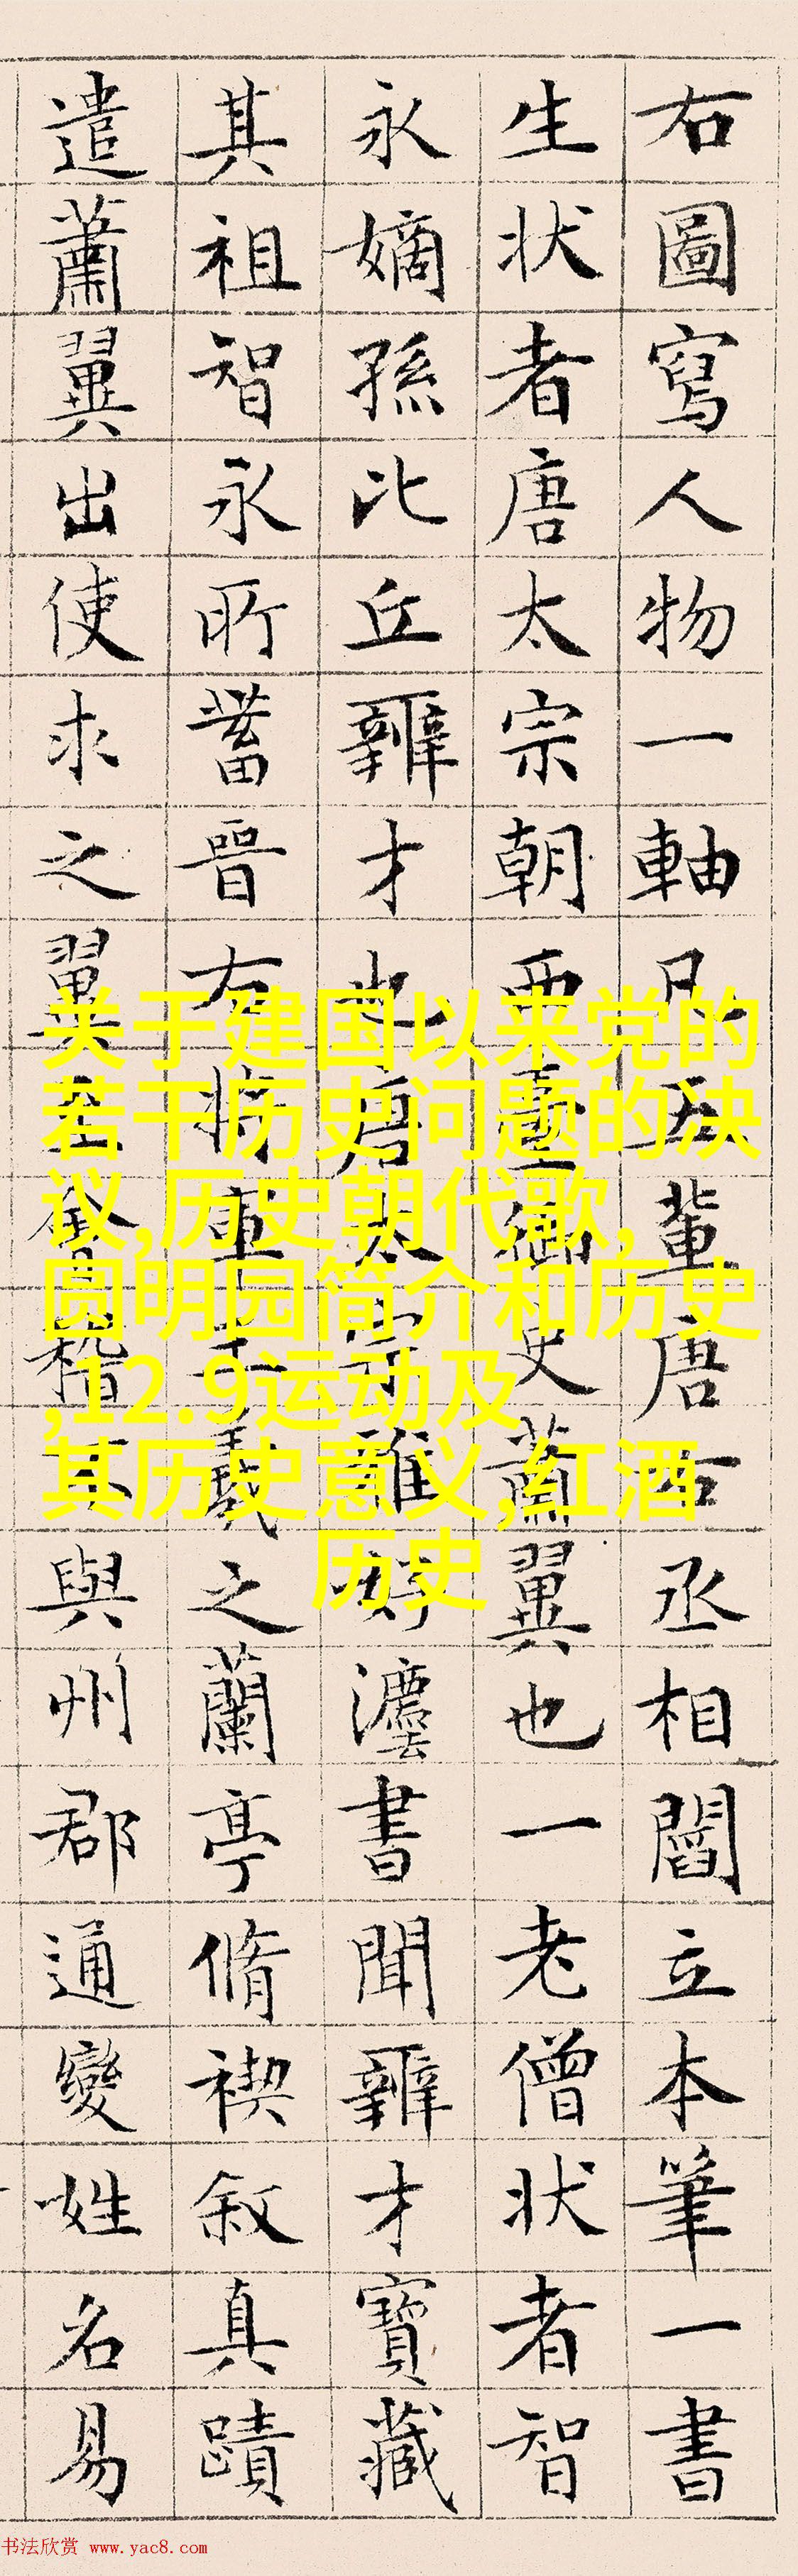 右圖寫人物一軸凡五輩唐右丞相閻立本筆一書
生状者唐太宗朝西臺御史蕭翼也一老僧状者智
永嫡孫比丘辯才也唐太宗雅好灋書聞辯才寶藏
其祖智永所蓄晉右將軍王羲之蘭亭脩禊敘真蹟
遣蕭翼出使求之翼至會稽不與州郡通變姓名易
关于建国以来党的
若干历史问题的决
议,历史朝代歌,
圆明园简介和历史
,12.9运动及
其历史意义,红酒
历史
书法欣赏 www.yac8.com